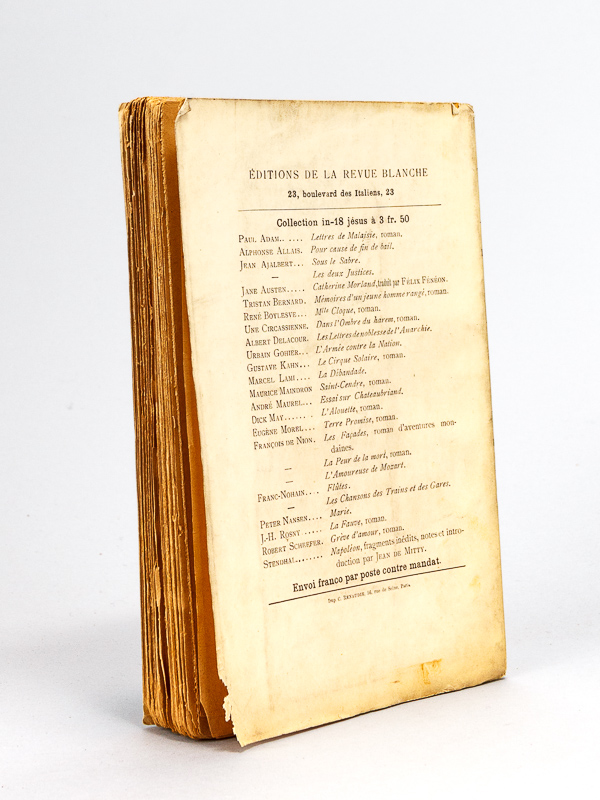 ÉDITIONS DE LA REVUE BLANCHE
23, boulevard des Italiens, 23
Collection in-18 jésus à 3 fr. 50
PAUL ADAM...... Lettres de Malaisie, roman.
ALPHONSE ALLAIS. Pour cause de fin de bail.
JEAN AJALBERT... Sous le Sabre.
— Les deux Justices.
JANE AUSTEN..... Catherine Morland, traduit par FÉLIX FÉNÉON.
TRISTAN BERNARD. Mémoires d'un jeune homme rangé, roman.
RENÉ BOYLESVE... Mlle Cloque, roman.
UNE CIRCASSIENNE. Dans l'Ombre du harem, roman.
ALBERT DELACOUR. Les Lettres de noblesse de l'Anarchie.
URBAIN GOHIER... L'Armée contre la Nation.
GUSTAVE KAHN... Le Cirque Solaire, roman.
MARCEL LAMI.... La Débandade.
MAURICE MAINDRON Saint-Cendre, roman.
ANDRÉ MAUREL... Essai sur Chateaubriand.
DICK MAY....... L'Alouette, roman.
EUGÈNE MOREL... Terre Promise, roman.
FRANÇOIS DE NION. Les Façades, roman d'aventures mon-
daines.
— La Peur de la mort, roman.
— L'Amoureuse de Mozart.
FRANC-NOHAIN.... Flûtes.
— Les Chansons des Trains et des Gares.
PETER NANSEN.... Marie.
J.-H. ROSNY ..... La Fauve, roman.
ROBERT SCHEFFER. Grève d'amour, roman.
STENDHAL........ Napoléon, fragments inédits, notes et intro-
duction par JEAN DE MITTY.
Envoi franco par poste contre mandat.
Imp C. RENAUDIE, 56, rue de Seine, Paris.